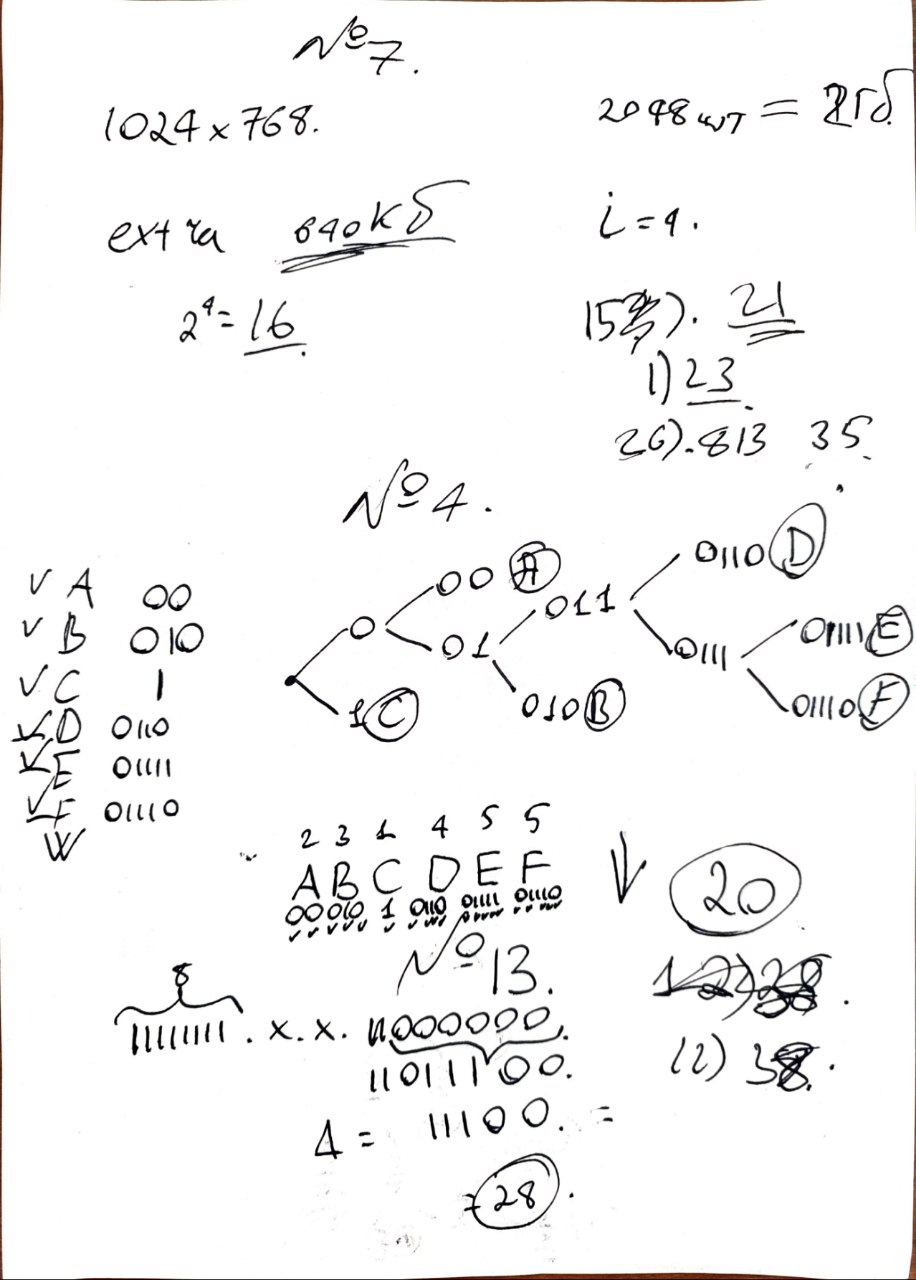 №7.
1024 x 768.
2048 шт = 2Гб.
extra 640Кб
i = 4.
2⁴ = 16.
15). 21
1) 23.
26). 813 35.
№4.
A 00
B 010
C 1
D 0110
E 01111
F 01110
W
0
1 C
00 A
01
011
010 B
0110 D
0111
01111 E
01110 F
2 3 1 4 5 5
A B C D E F
00 010 1 0110 01111 01110
20
№13.
8
11111111 . x. x. 11000000.
11011100.
4 = 11100. =
= 28.
12)
12) 38.